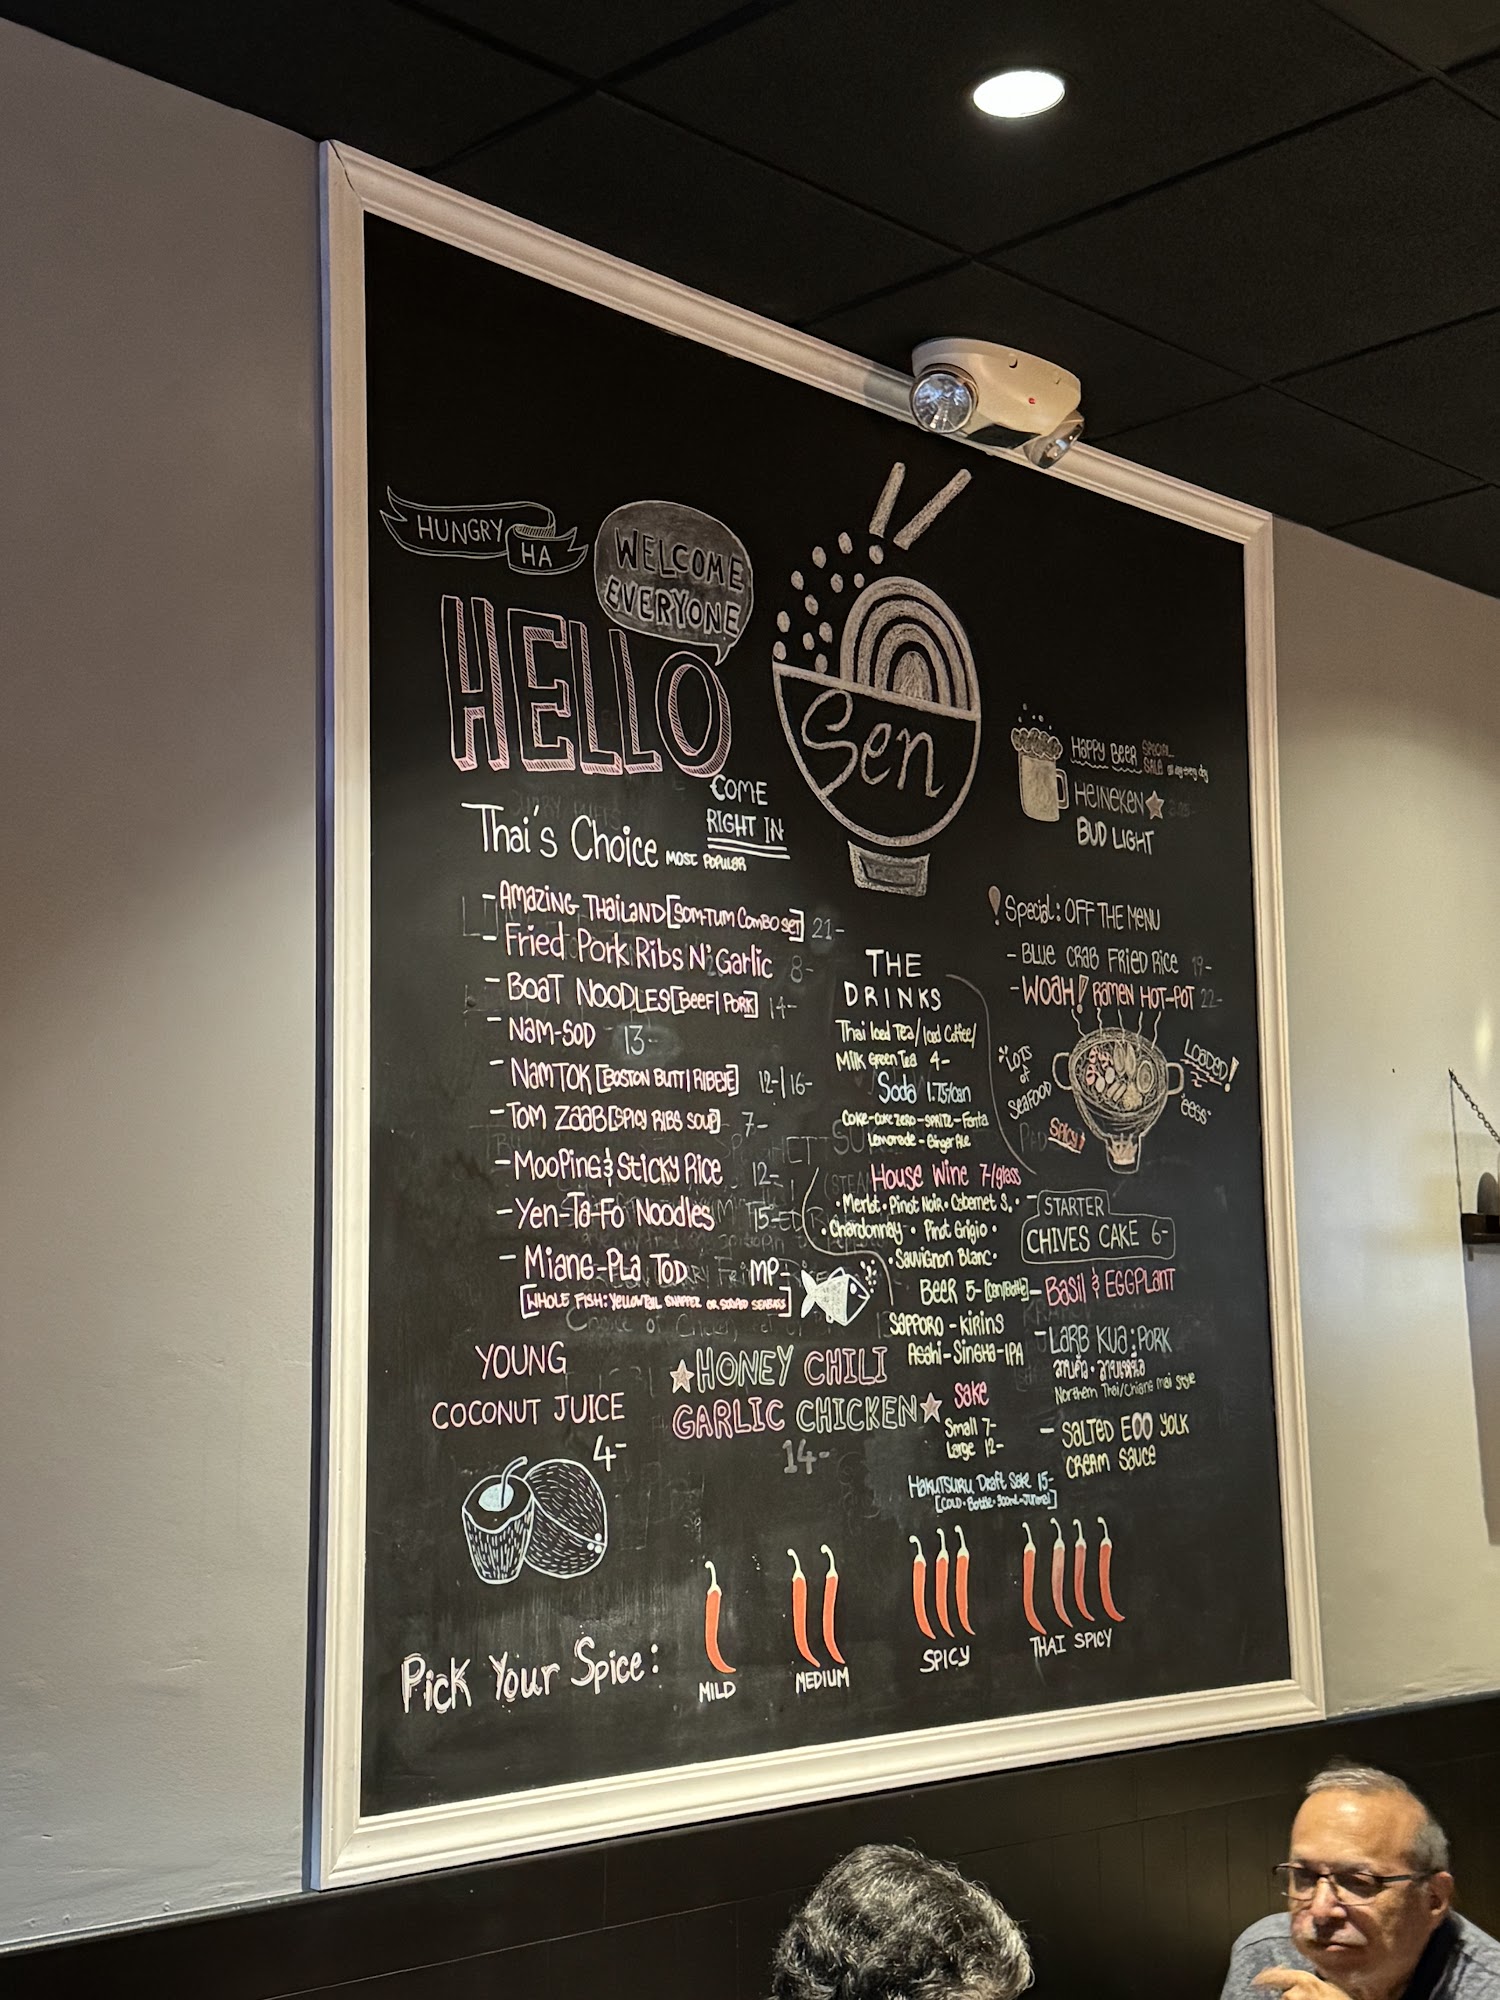 HUNGRY
HA
WELCOME
EVERYONE
HELLO
COME
RIGHT IN
Sen
HAPPY BEER SPECIAL
SALE
HEINEKEN
BUD LIGHT
Thai's Choice MOST POPULAR
- AMAZING THAILAND [SOM-TUM COMBO SET] 21-
- Fried Pork Ribs N' Garlic 8-
- BOAT NOODLES [BEEF | PORK] 14-
- NAM-SOD 13-
- NAMTOK [BOSTON BUTT | RIBEYE] 12-|16-
- TOM ZAAB [SPICY RIBS SOUP] 7-
- MOOPING & STICKY RICE 12-
- Yen-Ta-Fo Noodles 15-
- MIANG-PLA TOD MP-
[WHOLE FISH: YELLOWTAIL SNAPPER OR SQUAD SEABASS]
YOUNG
COCONUT JUICE
4-
HONEY CHILI
GARLIC CHICKEN
14-
THE
DRINKS
Thai Iced Tea/ Iced Coffee/
Milk Green Tea 4-
Soda 1.75/can
COKE-COKE ZERO-SPRITE-Fanta
Lemonade - Ginger Ale
HOUSE WINE 7-/glass
• Merlot • Pinot Noir • Cabernet S. •
• Chardonnay • Pinot Grigio •
• Sauvignon Blanc •
BEER 5- [can/Bottle]
SAPPORO - KIRINS
Asahi - SINGHA - IPA
Sake
Small 7-
Large 12-
HAKUTSURU Draft Sake 15-
! Special: OFF THE MENU
- BLUE CRAB FRIED RICE 19-
- WOAH! RAMEN HOT-POT 22-
LOTS
of
SEAFOOD
LOADED!
"EGGS"
SPICY!
- STARTER
CHIVES CAKE 6-
- BASIL & EGGPLANT
- LARB KUA: PORK
ลาบคั่ว • ลาบเหนือ
Northern Thai/Chiang mai Style
- SALTED EGG YOLK
CREAM SAUCE
Pick Your Spice:
MILD
MEDIUM
SPICY
THAI SPICY